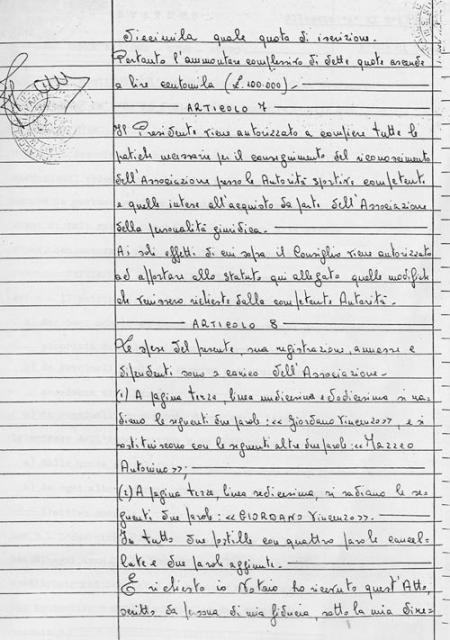 Diecimila quale quota di iscrizione.
Pertanto l'ammontare complessivo di dette quote ascende
a lire centomila (£.100.000).-
ARTICOLO 7
Il Presidente viene autorizzato a compiere tutte le
pratiche necessarie per il conseguimento del riconoscimento
dell'Associazione presso le Autorità sportive competenti
e quelle intese all'acquisto da parte dell'Associazione
della personalità giuridica.-
Ai soli effetti di cui sopra il Consiglio viene autorizzato
ad apportare allo statuto qui allegato quelle modifiche
che venissero richieste dalla competente Autorità.-
ARTICOLO 8
Le spese del presente, sua registrazione, annesse e
dipendenti sono a carico dell'Associazione.-
(1) A pagina terza, linea undicesima e dodicesima si ra=
diano le seguenti due parole: «Giordano Vincenzo», e si
sostituiscono con le seguenti altre due parole: «Mazzeo
Antonino»;
(2) A pagina terza, linea sedicesima, si radiano le se=
guenti due parole: «GIORDANO Vincenzo».
In tutto due postille con quattro parole cancel=
late e due parole aggiunte.-
E richiesto io Notaio ho ricevuto quest'Atto,
scritto da persona di mia fiducia, sotto la mia dire=